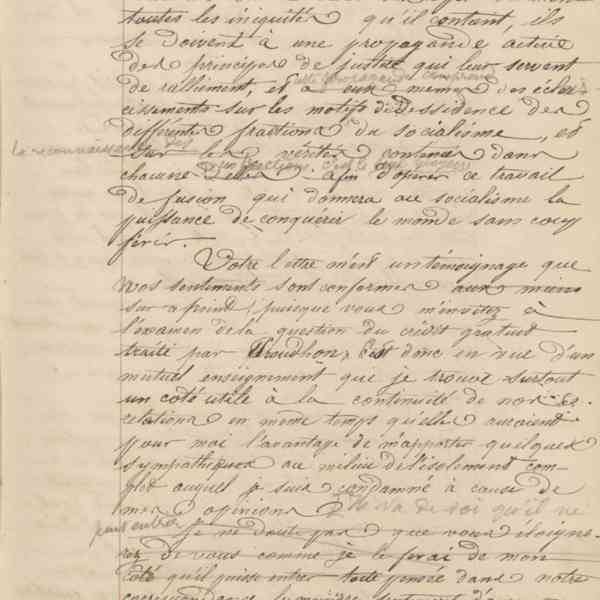 toutes les iniquités qu'il contient, ils
se doivent à une propagande active
des principes de justice qui leur servent
de ralliement, et à eux mêmes des éclair-
cissements sur les motifs de dissidence des
différentes fractions du socialisme, et
la reconnaissance des
sur les vérités contenues dans
chacune d'elles afin d'opérer ce travail
de fusion qui donnera au socialisme la
puissance de conquérir le monde sans coup
férir.
Votre lettre m'est un témoignage que
vos sentiments sont conformes aux miens
sur ce point, puisque vous m'invitez à
l'examen de la question du crédit gratuit
traité par Proudhon. C'est donc en vue d'un
mutuel enseignement que je trouve surtout
un coté utile à la continuité de nos
relations en même temps qu'elles auraient
pour moi l'avantage de m'apporter quelques
sympathiques au milieu de l'isolement com-
plet auquel je suis condamné à cause de
mes opinions Il va de soi qu'il ne
peut entrer
Je ne doute pas que vous éloigne-
rez de vous comme je le ferai de mon
coté qu'il puisse entrer toute pensée dans notre
correspondance